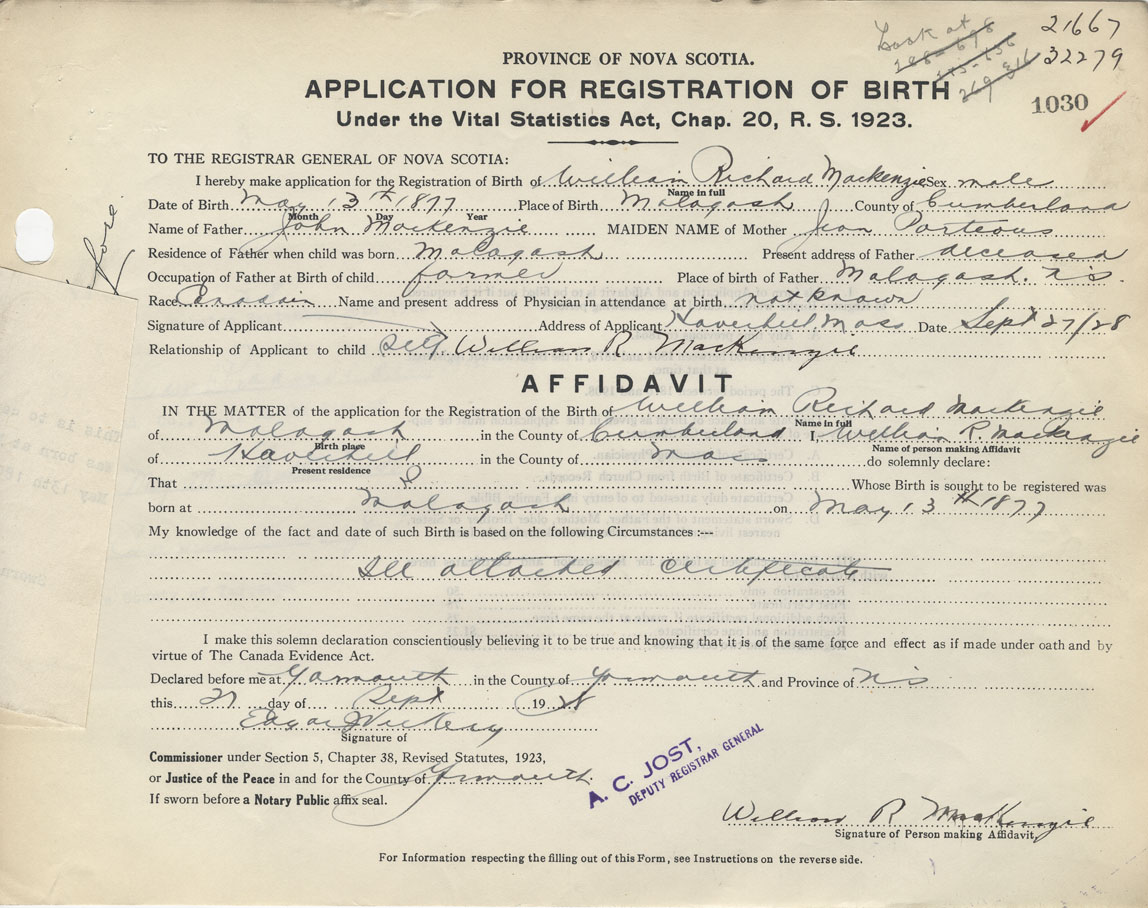 Look at
21667
32279
1030
PROVINCE OF NOVA SCOTIA.
APPLICATION FOR REGISTRATION OF BIRTH
Under the Vital Statistics Act, Chap. 20, R. S. 1923.
TO THE REGISTRAR GENERAL OF NOVA SCOTIA:
I hereby make application for the Registration of Birth of William Richard Mackenzie Sex male
Name in full
Date of Birth May 13th 1877 Place of Birth Malagash County of Cumberland
Month Day Year
Name of Father John MacKenzie MAIDEN NAME of Mother Jean Porteous
Residence of Father when child was born Malagash Present address of Father deceased
Occupation of Father at Birth of child farmer Place of birth of Father Malagash. N.S.
Race Name and present address of Physician in attendance at birth not known
Signature of Applicant Address of Applicant Haverhill, Mass Date Sept 27/28
Relationship of Applicant to child self. William R MacKenzie
AFFIDAVIT
IN THE MATTER of the application for the Registration of the Birth of William Richard MacKenzie
Name in full
of Malagash in the County of Cumberland I, William R. MacKenzie
Birth place Name of person making Affidavit
of Haverhill in the County of Mass do solemnly declare:
Present residence
That I Whose Birth is sought to be registered was
born at Malagash on May 13th 1877
My knowledge of the fact and date of such Birth is based on the following Circumstances :---
See attached certificate
I make this solemn declaration conscientiously believing it to be true and knowing that it is of the same force and effect as if made under oath and by
virtue of The Canada Evidence Act.
Declared before me at Yarmouth in the County of Yarmouth and Province of N.S
this 27 day of Sept 1928
Signature of
Commissioner under Section 5, Chapter 38, Revised Statutes, 1923,
or Justice of the Peace in and for the County of Yarmouth.
If sworn before a Notary Public affix seal.
A. C. JOST,
DEPUTY REGISTRAR GENERAL
William R MacKenzie
Signature of Person making Affidavit,
For Information respecting the filling out of this Form, see Instructions on the reverse side.